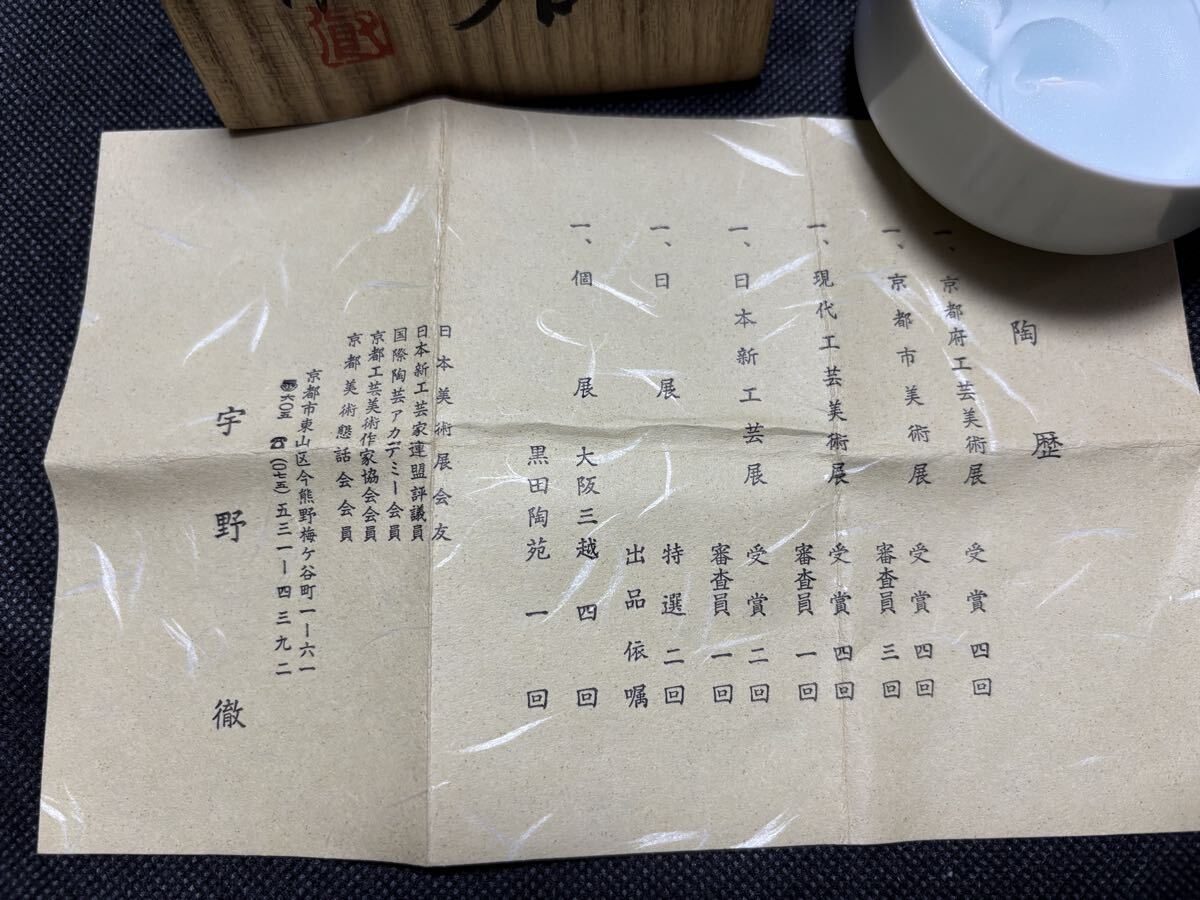 陶歴
一、京都府工芸美術展 受賞 四回
一、京都市美術展 受賞 四回
審査員 三回
一、現代工芸美術展 受賞 四回
審査員 一回
一、日本新工芸展 受賞 二回
審査員 一回
一、日展 特選 二回
出品依嘱
一、個展 大阪三越 四回
黒田陶苑 一回
日本美術展会友
日本新工芸家連盟評議員
国際陶芸アカデミー会員
京都工芸美術作家協会会員
京都美術懇話会会員
京都市東山区今熊野梅ケ谷町一ー六一
六〇五 ☎(〇七五)五三一ー四三九二
宇野徹